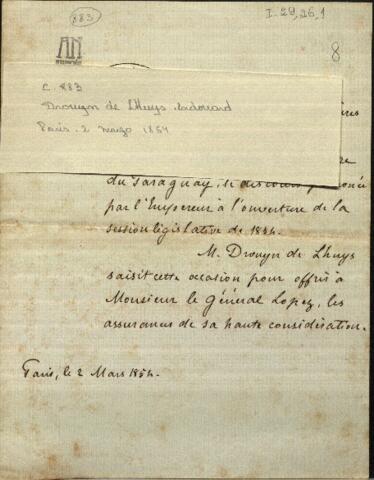 883
I-29,26,1
AN
8
C. 883
Drouyn de Lhuys. Edouard
Paris. 2 marzo 1854
du Paraguay, le discours prononcé
par l'Empereur à l'ouverture de la
session législative de 1854.
M. Drouyn de Lhuys
saisit cette occasion pour offrir à
Monsieur le Général Lopez, les
assurances de sa haute considération.
Paris, le 2 Mars 1854.